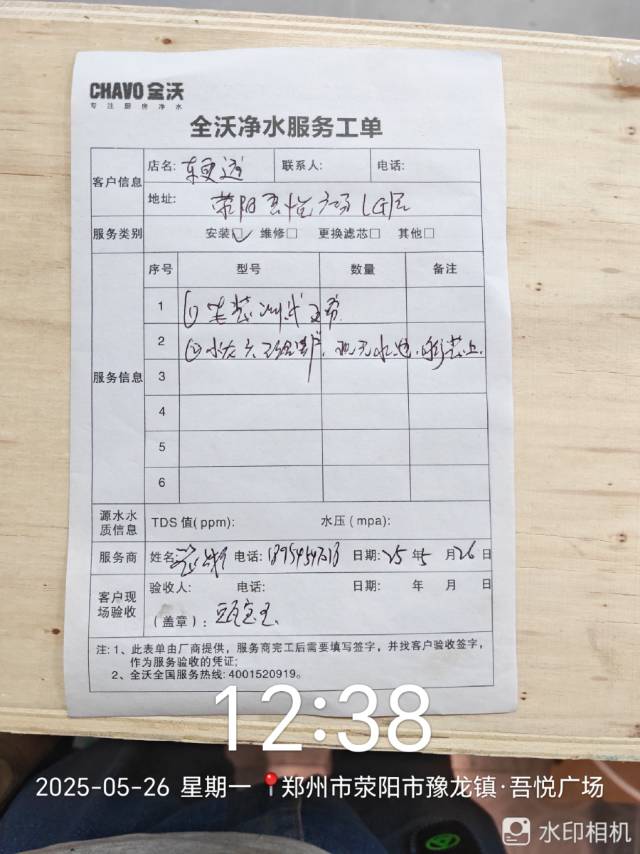 CHAVO 全沃
专注厨房净水
全沃净水服务工单
客户信息
店名:
联系人:
电话:
地址: 荥阳吾悦广场LG层
服务类别
安装□✓ 维修□ 更换滤芯□ 其他□
服务信息
序号 型号 数量 备注
1 ① 安装 调试 正常
2 ②
3
4
5
6
源水水质信息
TDS 值(ppm): 水压(mpa):
服务商
姓名: 电话: 日期: 25 年 5 月 26 日
客户现场验收
验收人: 电话: 日期: 年 月 日
(盖章):
注: 1、此表单由厂商提供，服务商完工后需要填写签字，并找客户验收签字，
作为服务验收的凭证;
2、全沃全国服务热线: 4001520919。
12:38
2025-05-26 星期一 郑州市荥阳市豫龙镇·吾悦广场
水印相机